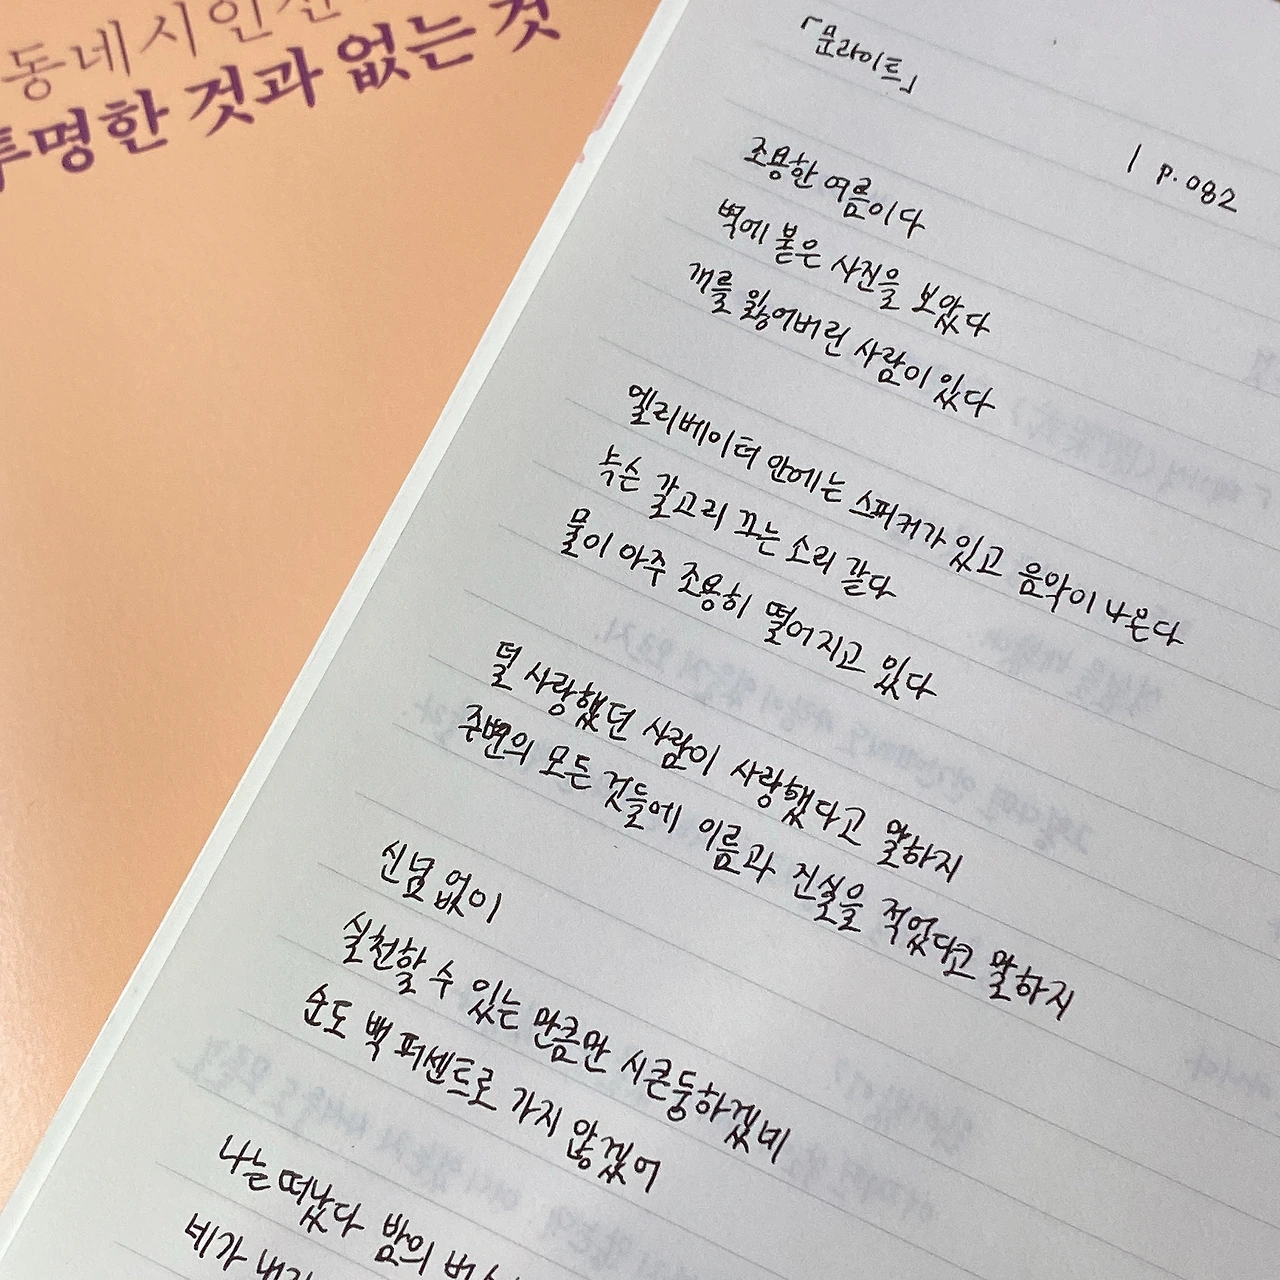 동네시인선
투명한 것과 없는 것
「문라이트」
| p.082
조용한 여름이다
벽에 붙은 사진을 보았다
개를 잃어버린 사람이 있다
엘리베이터 안에는 스피커가 있고 음악이 나온다
녹슨 갈고리 끄는 소리 같다
물이 아주 조용히 떨어지고 있다
덜 사랑했던 사람이 사랑했다고 말하지
주변의 모든 것들에 이름과 진실을 적었다고 말하지
신념 없이
실천할 수 있는 만큼만 시큰둥하겠네
순도 백 퍼센트로 가지 않겠어
나는 떠났다 밤의
네가